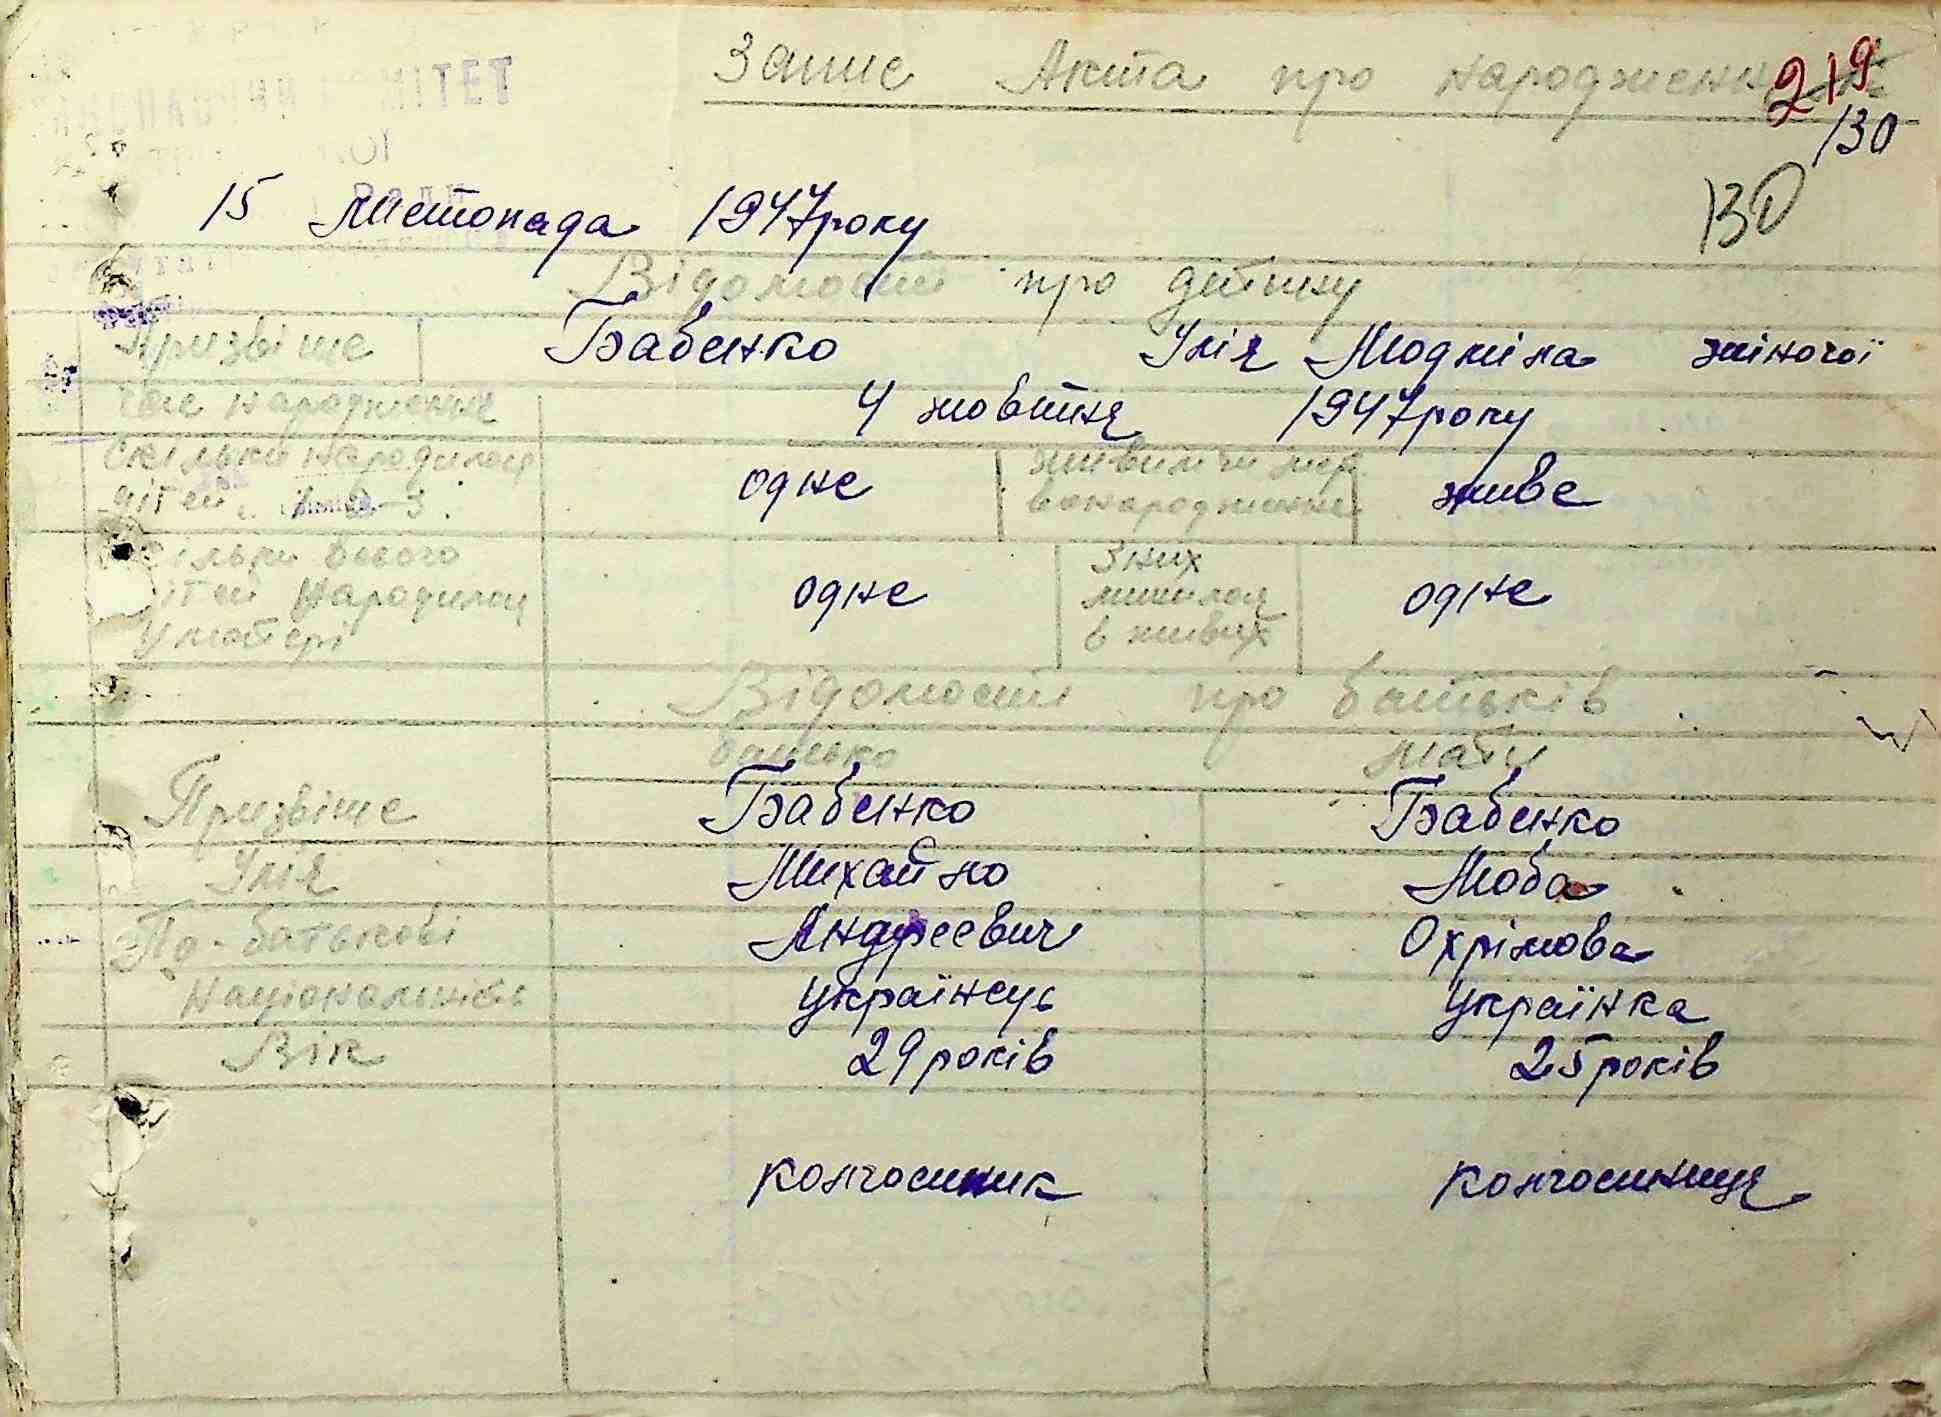 Запис Акта про народження
219
130
15 листопада 1947 року
130
Відомості про дитину
Призвіше Бабенко Імія Людміла жіночої
Час народження 4 жовтня 1947 року
Скільки народилося дітей 1 2-3. одне живим чи мертвонароджене живе
Скільки всього дітей народилось у матері одне З них лишилося в живих одне
Відомости про батьків
батько мати
Призвіше Бабенко Бабенко
Імія Михайло Люба
По-батькові Андреевич Охрімова
Національність Українець Українка
Вік 29 років 25 років
колгоспник колгоспниця